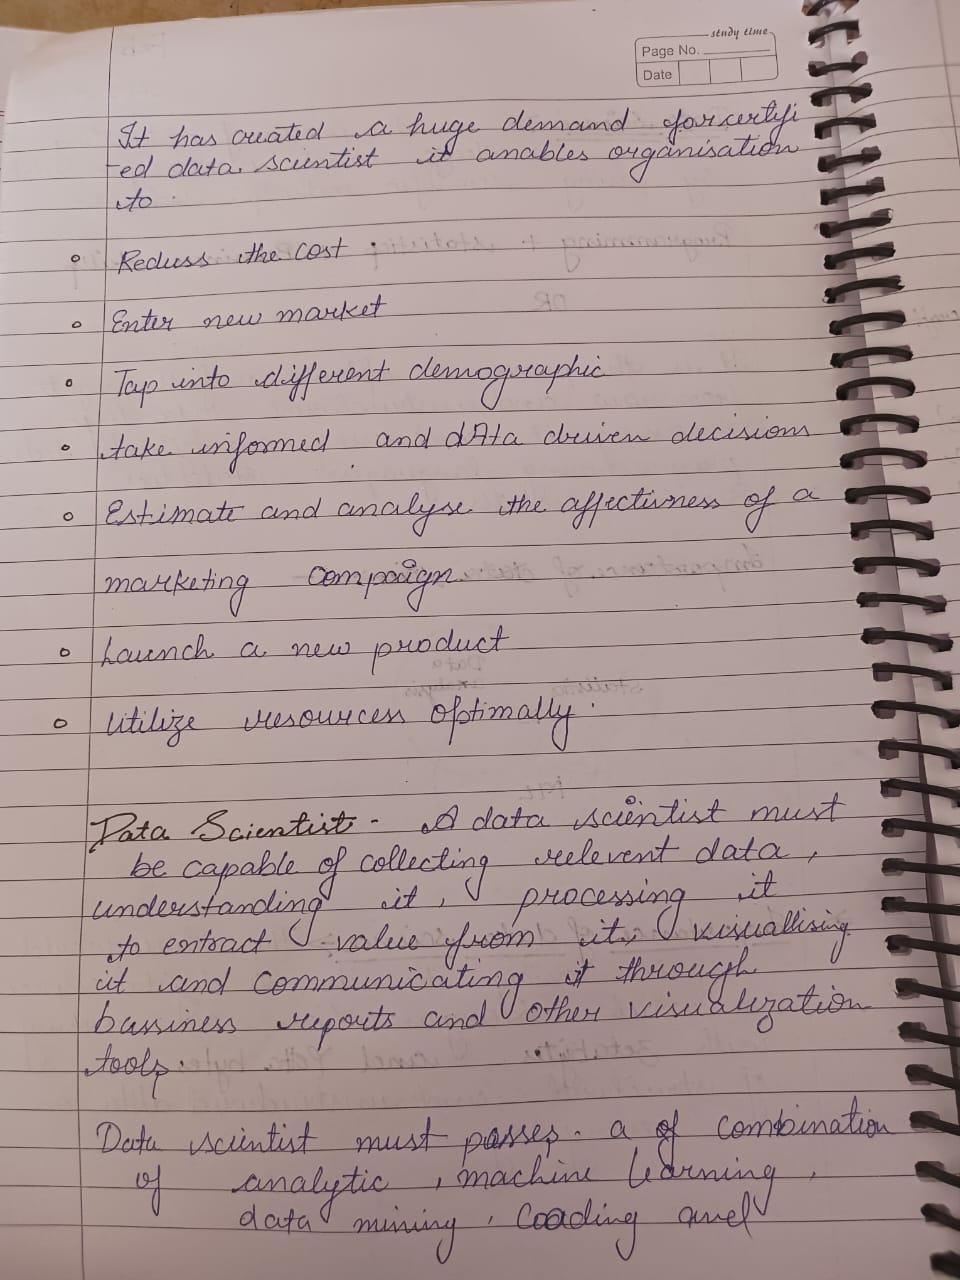 study time
Page No.
Date
It has created a huge demand for certifi
ed data scientist it anables organisation
to
Reduss the cost
Enter new market
Tap into different demographic
take informed and dAta driven decisions
Estimate and analyse the affectivness of a
marketing compaign
Launch a new product
Utilize resourcess optimally.
Data Scientist - A data scientist must
be capable of collecting relevent data,
understanding it, processing it
to entract value from it, visuallising
it and communicating it through
bussiness reports and other visualization
tools.
Data scientist must passes a of combination
of analytic, machine learning,
data mining, coading and